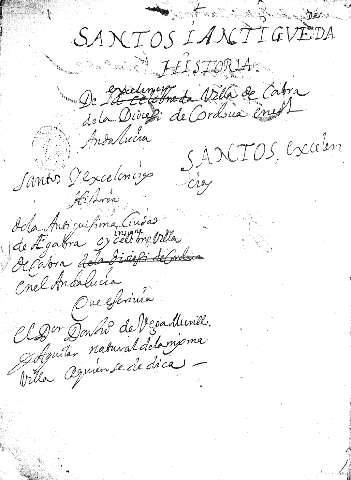 SANTOS I ANTIGUEDA
DE
HISTORIA.
excelencias
De la celebrada Villa de Cabra
de la Diocesi de Cordoua en est
Andalucia
SANTOS, excelen
cias
Santos Y excelencias
Historia
de la Antiquisima Ciudad
de Egabra oy celebre Villa
de Cabra de la Diocesi de Cordoua
en el Andalucia
Que escriuia
El Dor Don de Vega Murill.
y Aguilar natural de la misma
Villa a quien se dedica